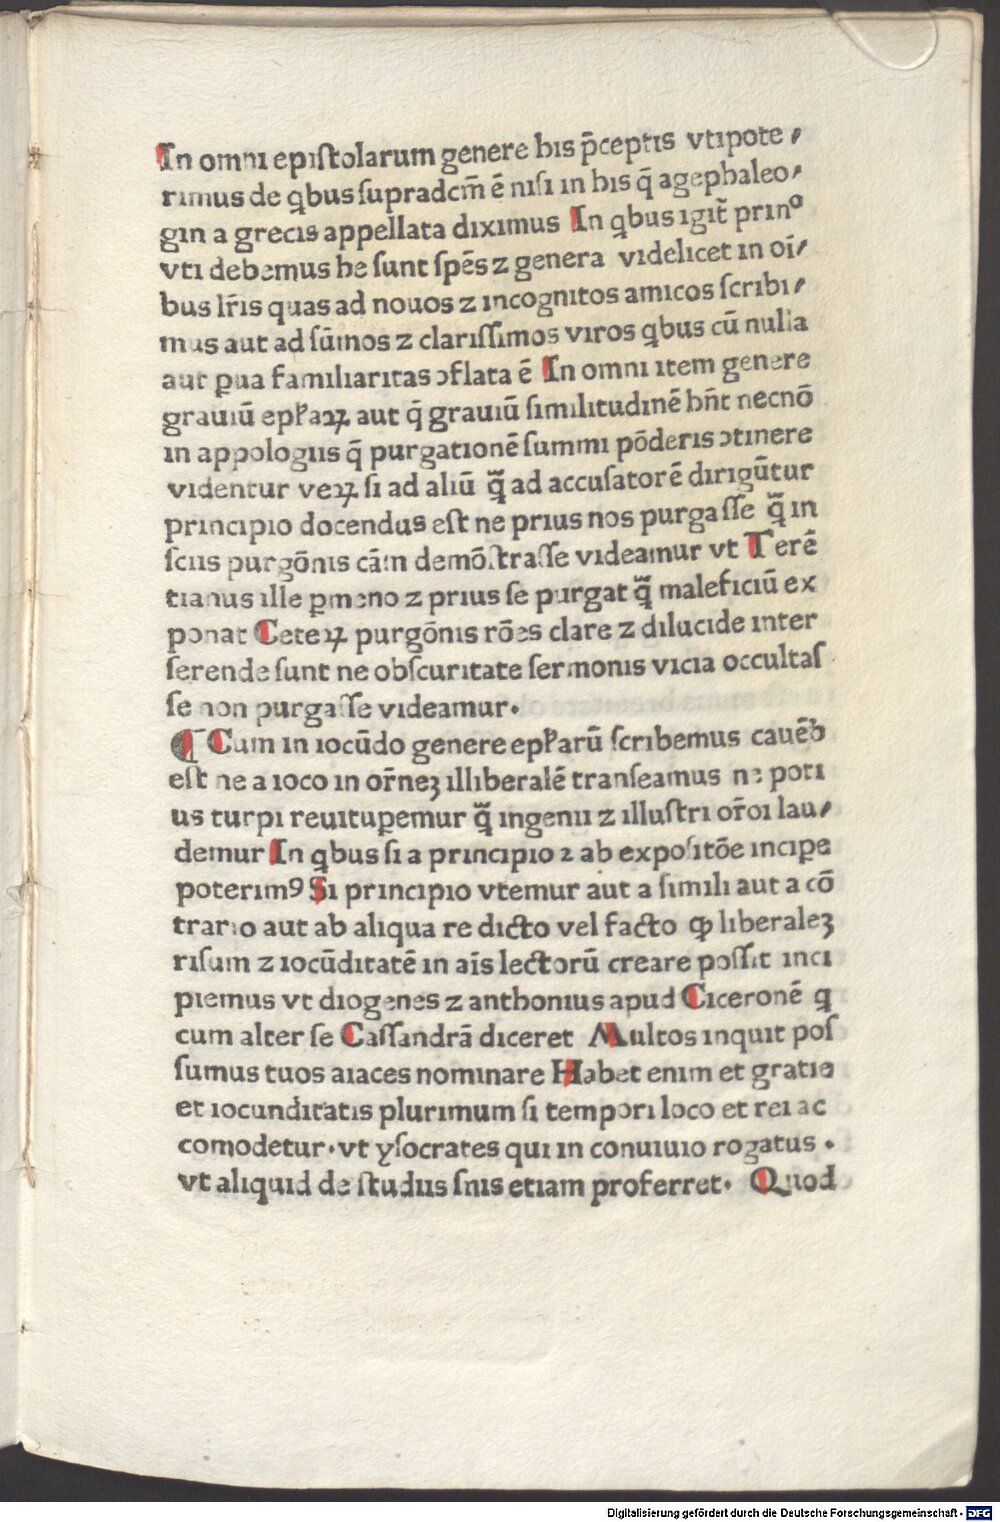 In omni epistolarum genere his p̄ceptis vti pote⸗
rimus de qbus supradcm̄ ē nisi in his q̄ agephaleo⸗
gin a grecis appellata diximus In qbus igit̄ prinº
vti debemus he sunt spēs ⁊ genera videlicet in oī⸗
bus lr̄is quas ad nouos ⁊ incognitos amicos scribi⸗
mus aut ad sūmos ⁊ clarissimos viros qbus cū nulla
aut ꝑua familiaritas ꝯflata ē In omni item genere
grauiū epl̄aꝝ aut q̄ grauiū similitudinē hn̄t necnō
in appologiis q̄ purgationē summi pōderis ꝯtinere
videntur veꝝ si ad aliū q̄ ad accusatorē dirigūtur
principio docendus est ne prius nos purgasse q̄ in
sciis purgōnis cām demōstrasse videamur vt Terē
tianus ille ꝑmeno ⁊ prius se purgat q̄ maleficiū ex
ponat Ceteꝝ purgōnis rōes clare ⁊ dilucide inter
serende sunt ne obscuritate sermonis vicia occultas
se non purgasse videamur.
¶ Cum in iocūdo genere epl̄arū scribemus cauēꝺ
est ne a ioco in or̄neꝫ illiberalē transeamus ne poti
us turpi reuituꝑemur q̄ ingenii ⁊ illustri or̄oi lau⸗
demur In qbus si a principio ⁊ ab expositōe inciꝑe
poterimꝯ Si principio vtemur aut a simili aut a cō
trario aut ab aliqua re dicto vel facto ꝙ liberaleꝫ
risum ⁊ iocūditatē in aīs lectorū creare possit inci
piemus vt diogenes ⁊ anthonius apud Ciceronē q
cum alter se Cassandrā diceret Multos inquit pos
sumus tuos aiaces nominare Habet enim et gratie
et iocunditatis plurimum si tempori loco et rei ac
comodetur. vt ysocrates qui in conuiuio rogatus .
vt aliquid de studiis snis etiam proferret. Quod
Digitalisierung gefördert durch die Deutsche Forschungsgemeinschaft - DFG